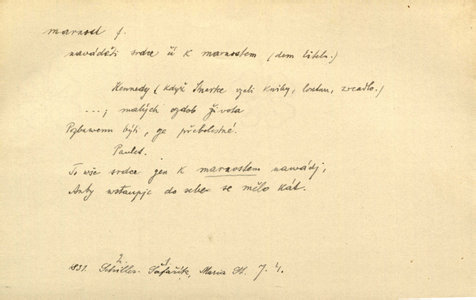 marnost f.
naváděti srdce k marnostem
Kennedy (když Stuartce vzali knihy, loutnu, zrcadlo.)
....; malých ozdob života
Pozbawenu býti, ge přebolestné.
Paulet.
To wše srdce gen k marnostem nawádj,
Anby wstaupje do sebe se mělo kát.
1831. Schiller. Šafařík, Maria St. J. 1.